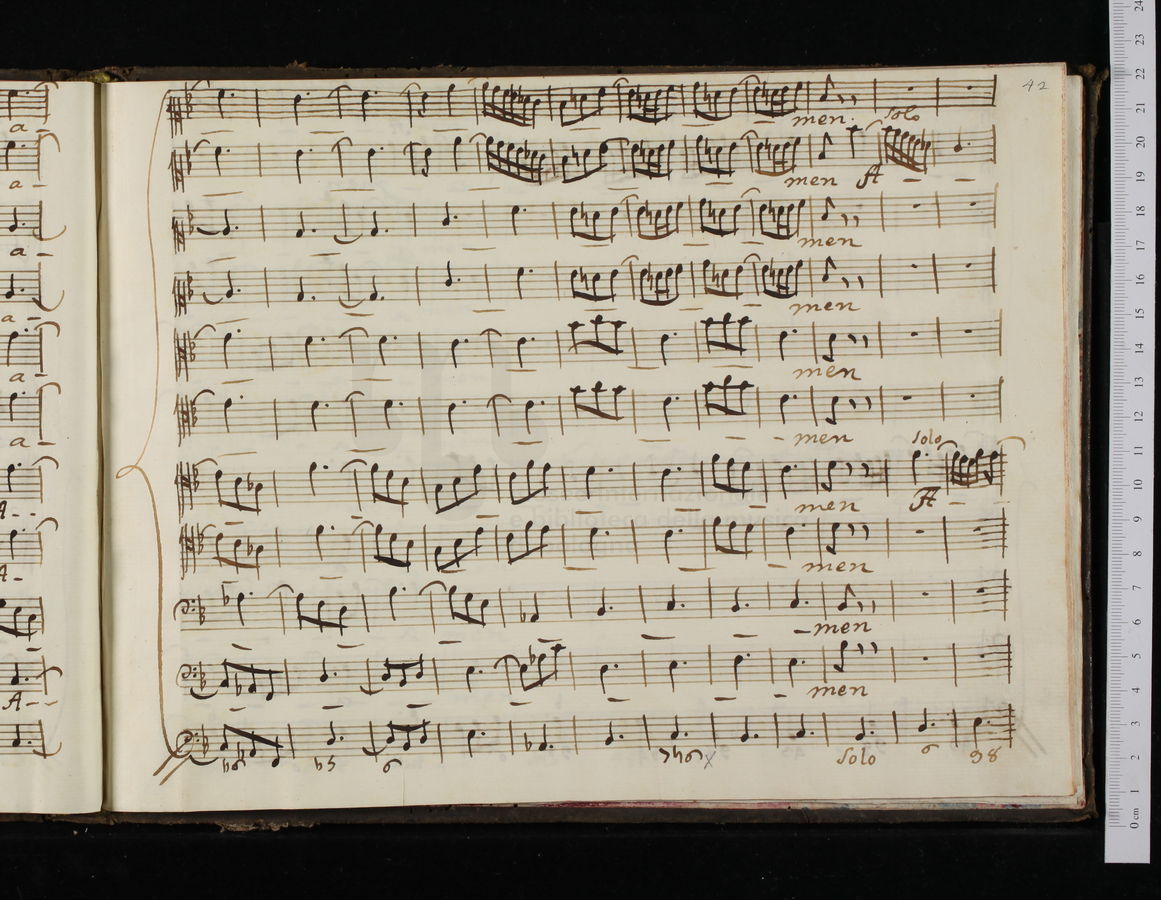 42
a -
men. solo
a -
men A - -
a -
men
a -
men
a -
men
a -
- men solo
A - -
men A -
A -
men
- men
A - -
men
b6 b5 6 7 6 solo 6 98
24
23
22
21
20
19
18
17
16
15
14
13
12
11
10
9
8
7
6
5
4
3
2
1
0 cm